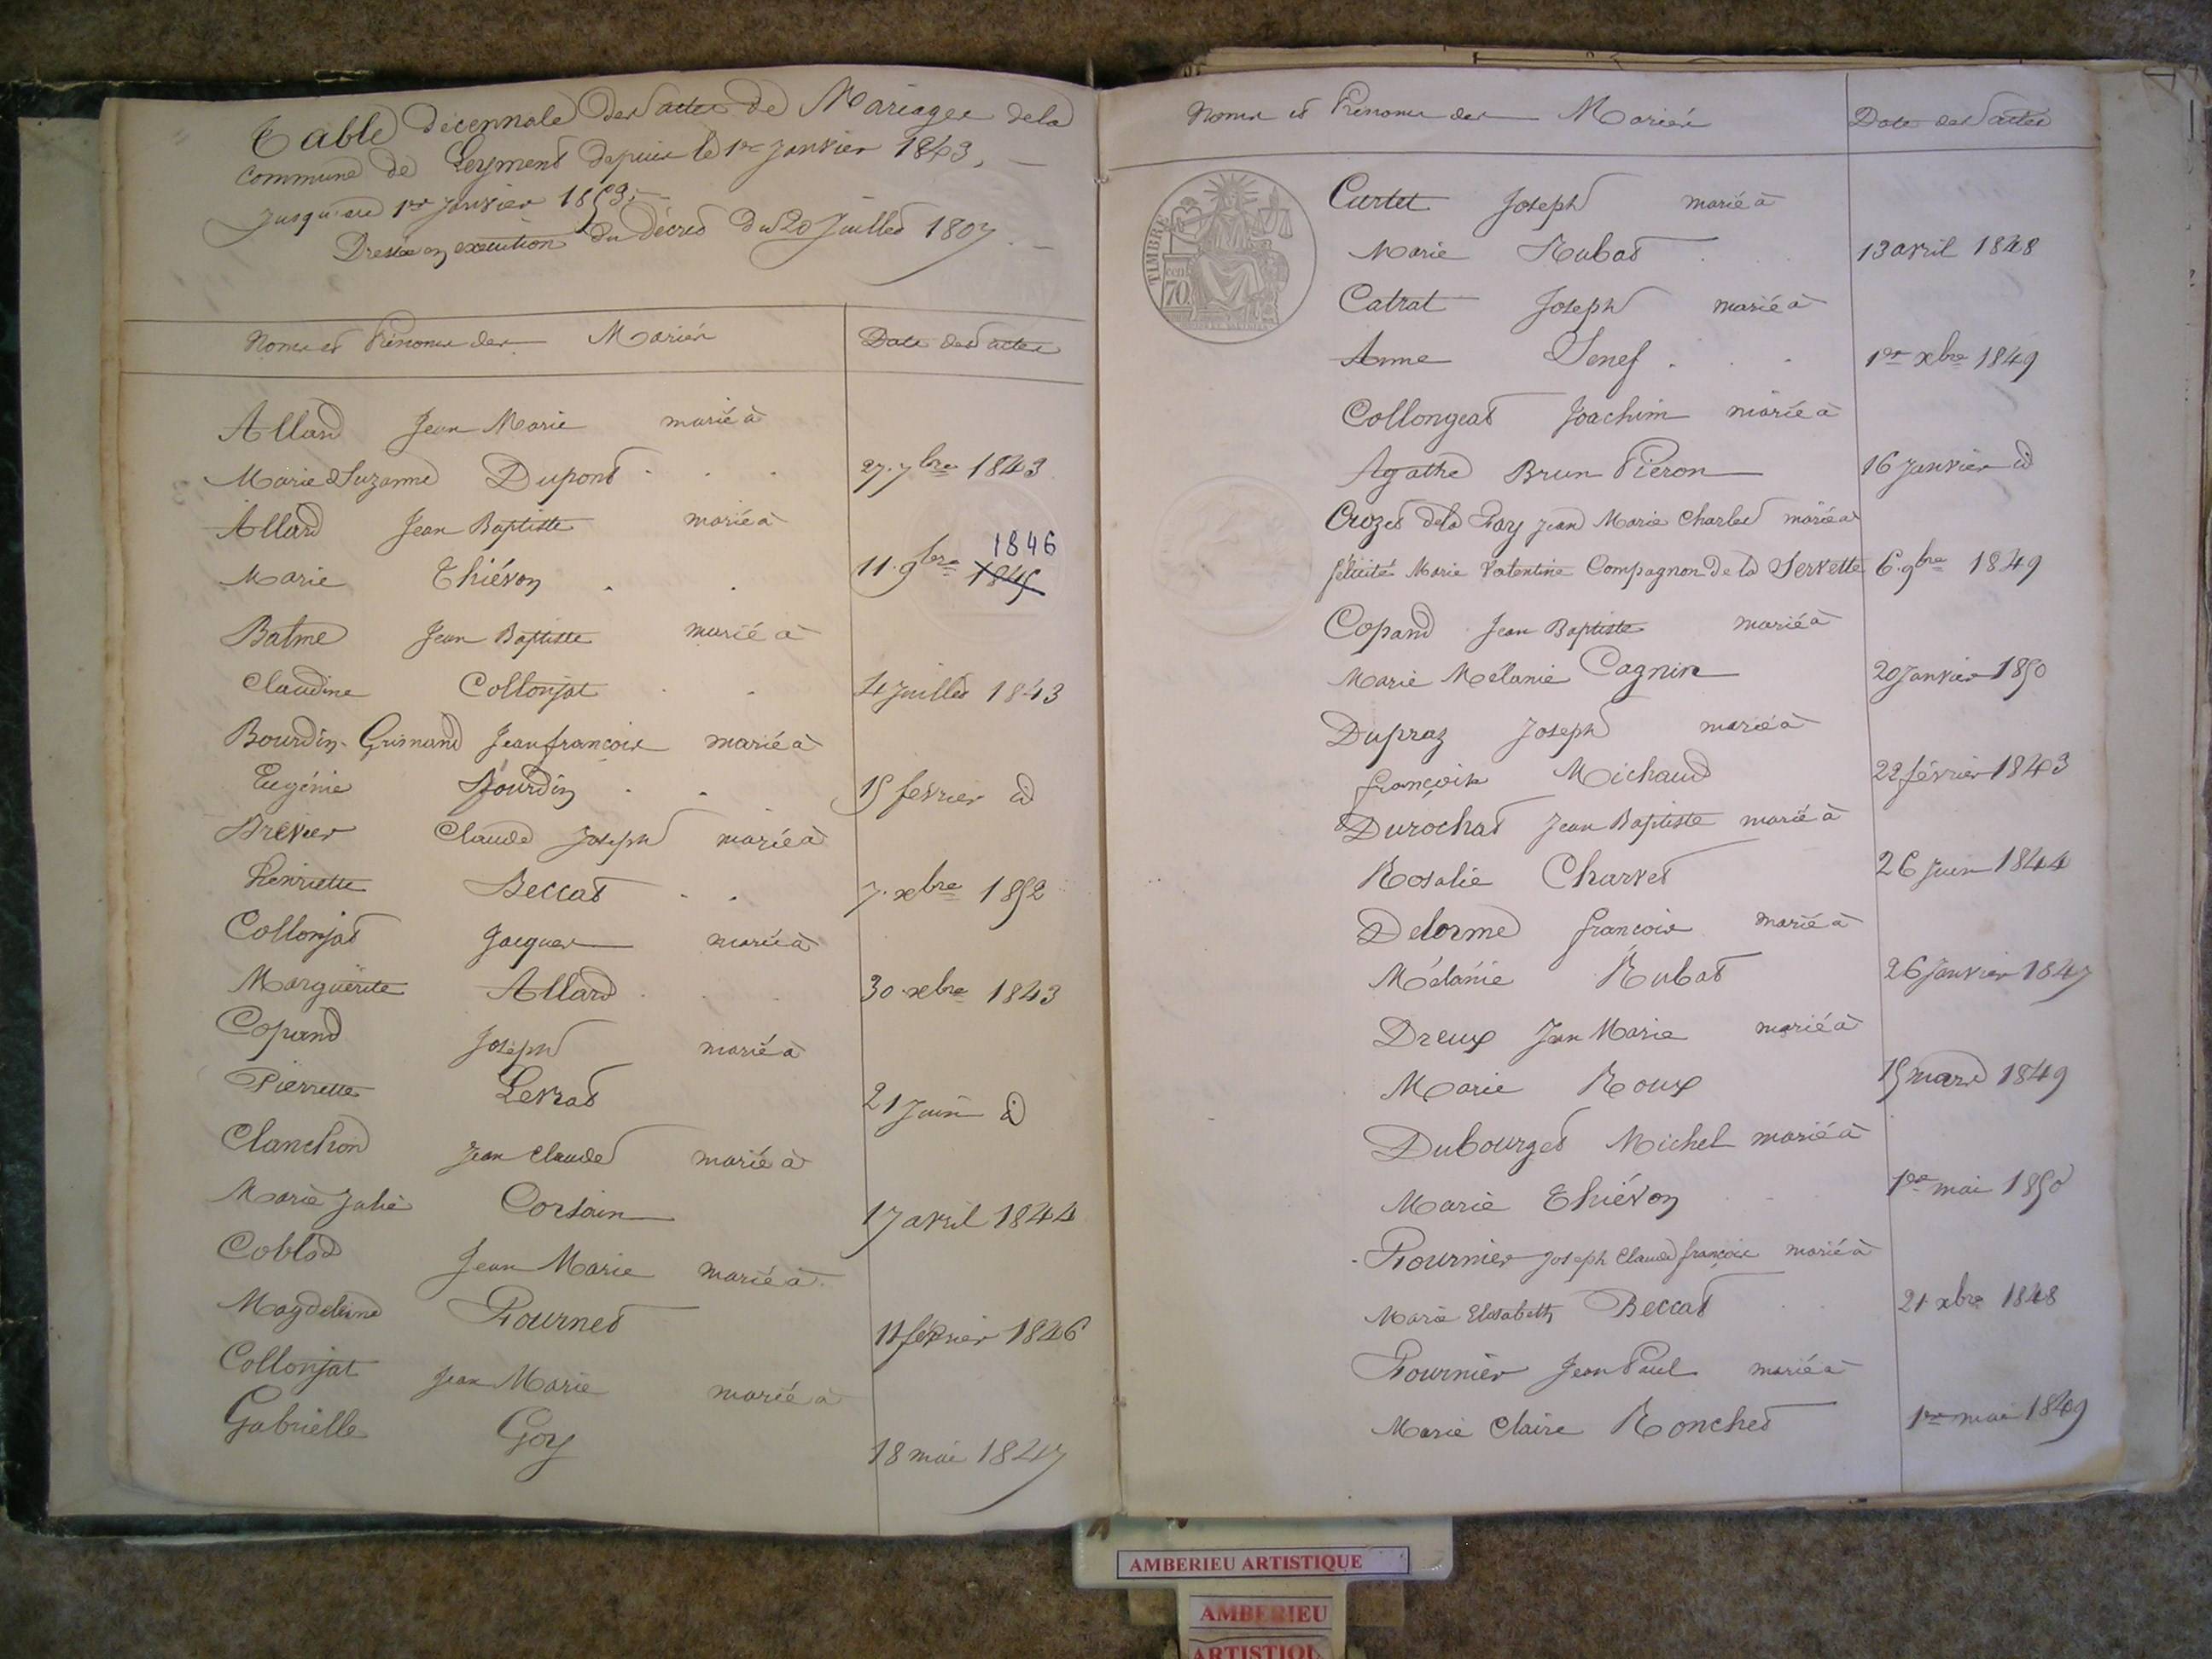 Table décennale des actes de Mariages de la
commune de Leyment depuis le 1er Janvier 1843,
jusqu'au 1er Janvier 1853,
Dressée en exécution du décret du 20 Juillet 1807.
Noms et Prénoms des Mariés Date des actes
Allard Jean Marie marié à
Marie Suzanne Dupont 27 7bre 1843
Allard Jean Baptiste marié à
1846
Marie Thiévon 11 9bre 1845
Balme Jean Baptiste marié à
Claudine Collonjat 4 Juillet 1843
Bourdin-Grimand Jean françois marié à
Eugénie Bourdin 15 février id
Brévier Claude Joseph marié à
henriette Beccat 7 xbre 1852
Collonjat Jacques marié à
Marguerite Allard 30 xbre 1843
Copand Joseph marié à
Pierrette Levrat 21 Juin id
Clanchon Jean Claude marié à
Marie Julie Corsain 17 avril 1844
Coblod Jean Marie marié à
Magdeleine Fournet 11 février 1846
Collonjat Jean Marie marié à
Gabrielle Goy 18 mai 1847
Noms et Prénoms des Mariés Date des actes
TIMBRE
70 cent
Curtet Joseph marié à
Marie Rubat 13 avril 1848
Catrat Joseph marié à
Anne Senef 1er xbre 1849
Collongeat Joachim marié à
Agathe Brun Pieron 16 Janvier id
Crozet de la Fay Jean Marie Charles marié à
félicité Marie Valentine Compagnon De la Servette 6 9bre 1849
Copand Jean Baptiste marié à
Marie Mélanie Cagnin 20 Janvier 1850
Dupraz Joseph marié à
françoise Michaud 22 février 1843
Durochat Jean Baptiste marié à
Rosalie Charvet 26 Juin 1844
Delorme françois marié à
Mélanie Rubat 26 Janvier 1847
Dreux Jean Marie marié à
Marie Roux 15 mars 1849
Dubourget Michel marié à
Marie Thiévon 1er mai 1850
Fournier Joseph Claude françois marié à
Marie Elisabeth Beccat 21 xbre 1848
Fournier Jean Paul marié à
Marie Claire Ronchet 1er mai 1849
AMBERIEU ARTISTIQUE
AMBERIEU
ARTISTIQU